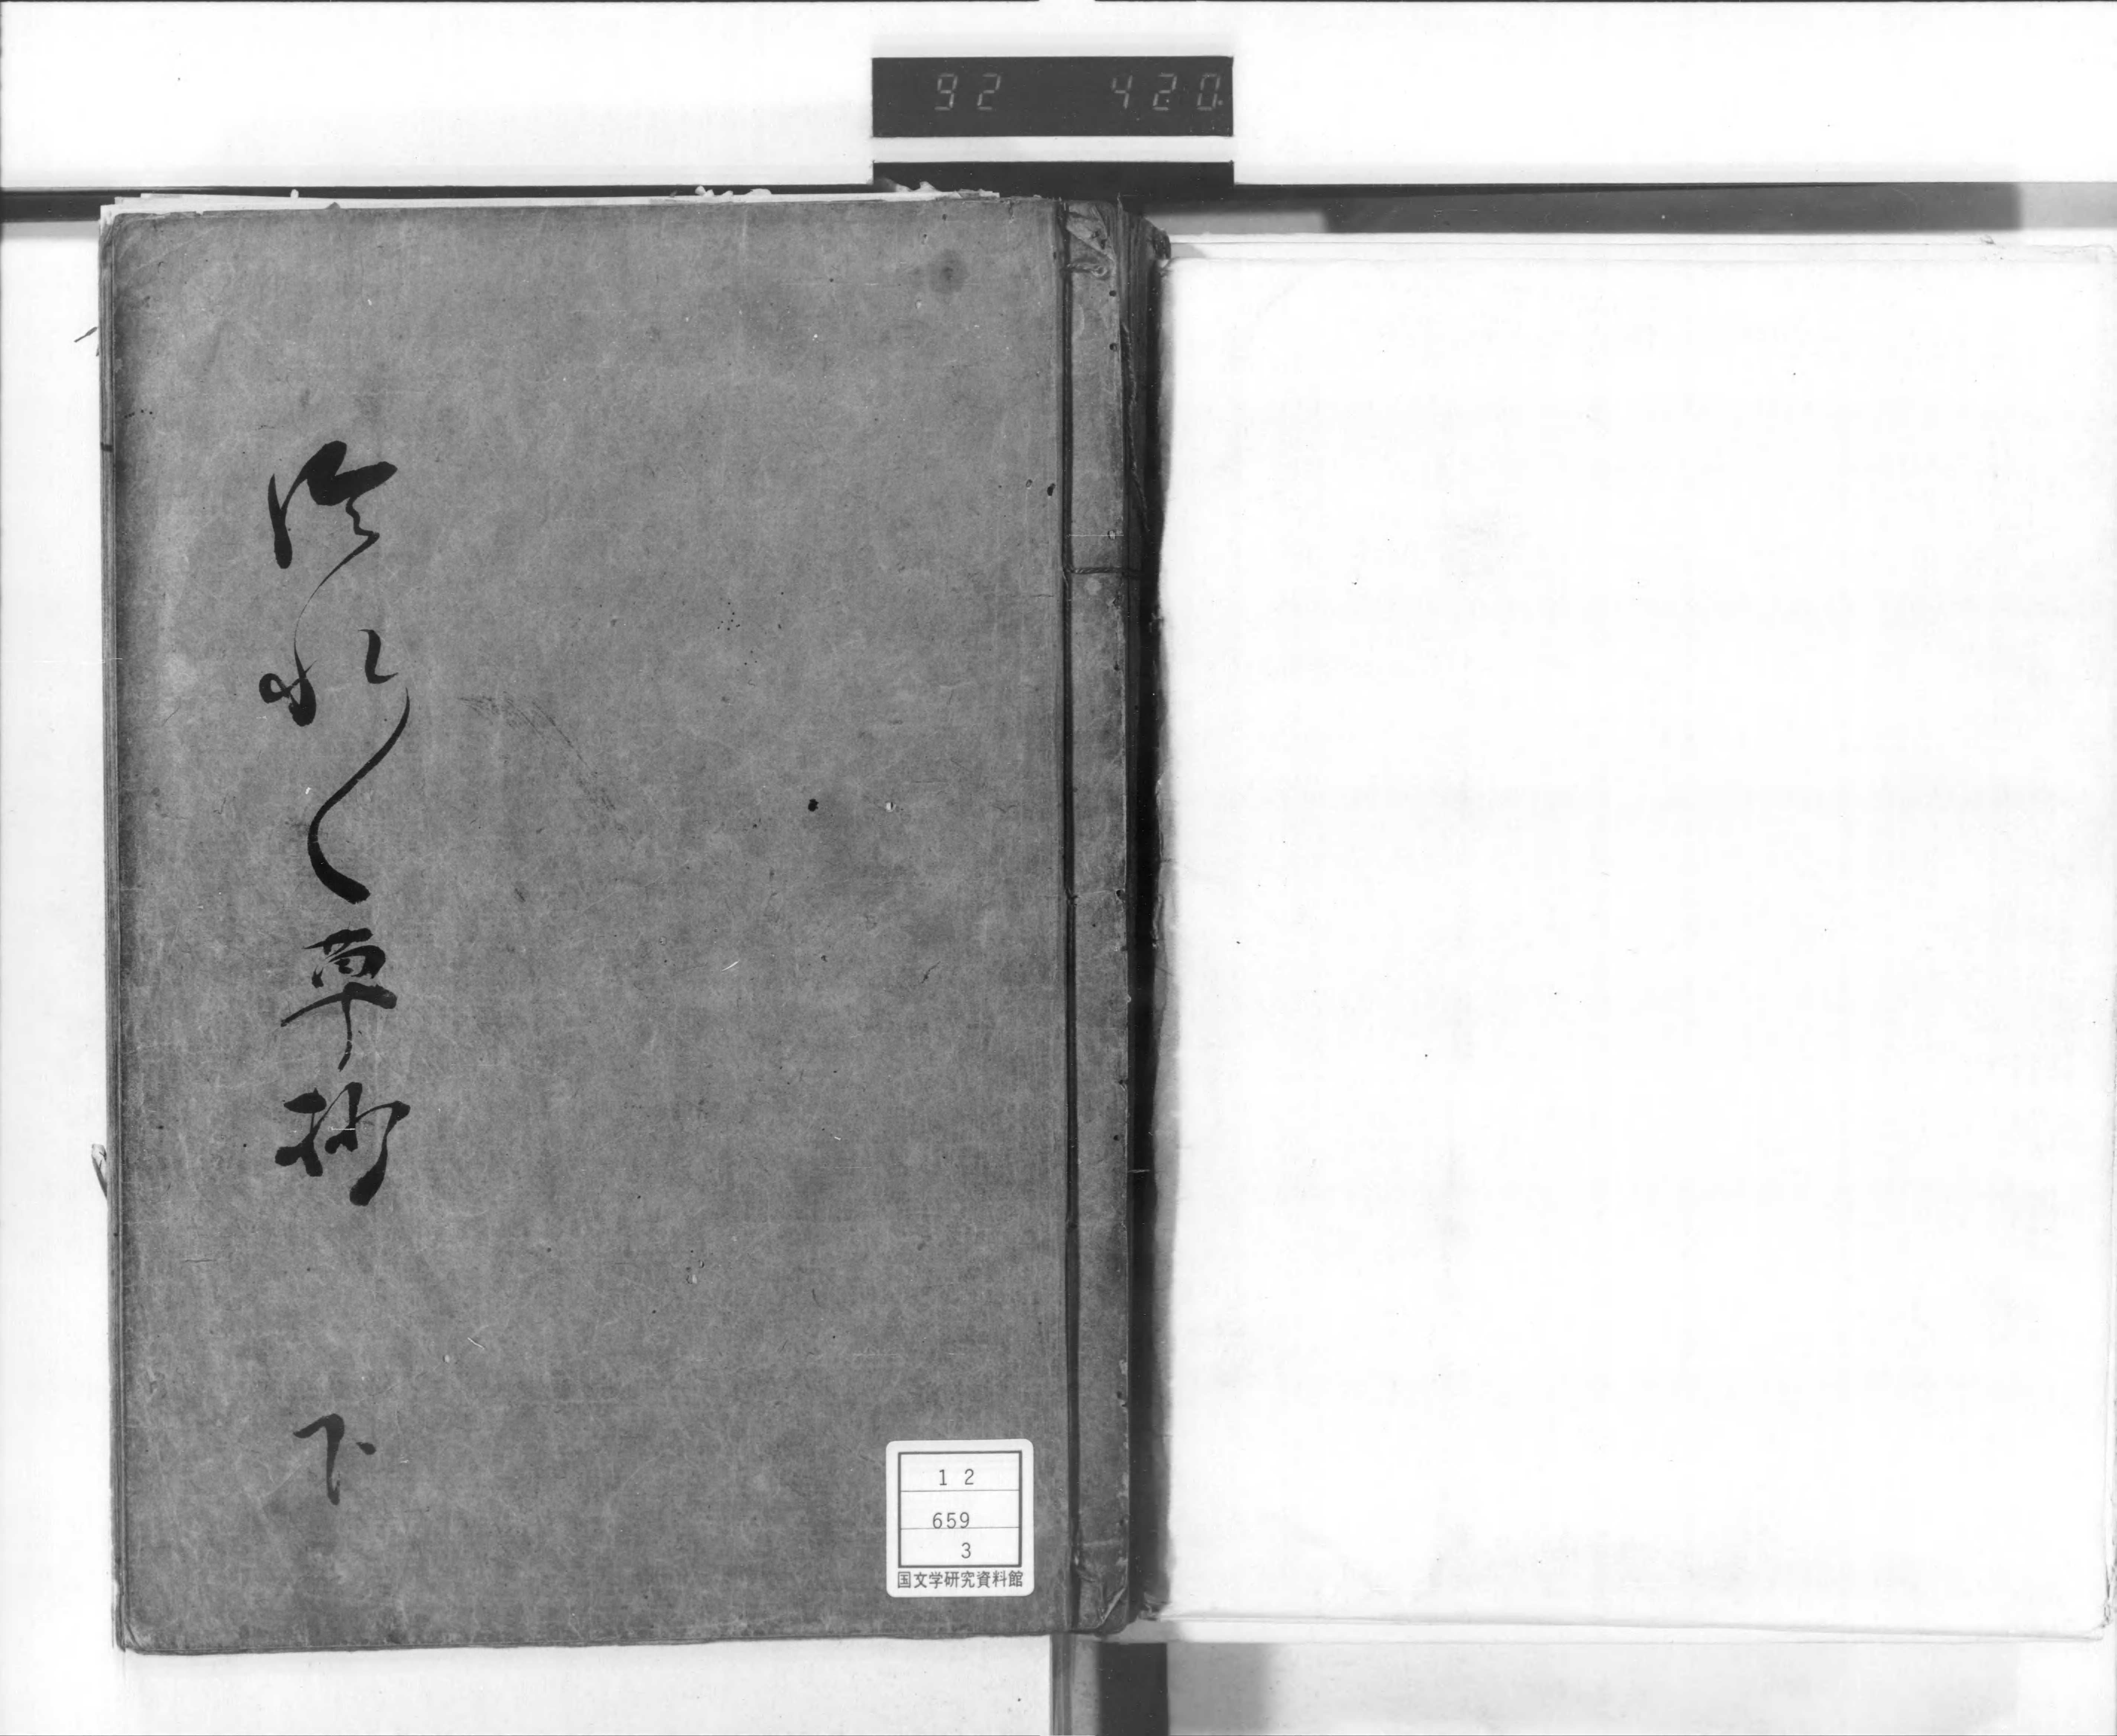 92 420
徒れ〳〵草抄 下
12
659
3
国文学研究資料館